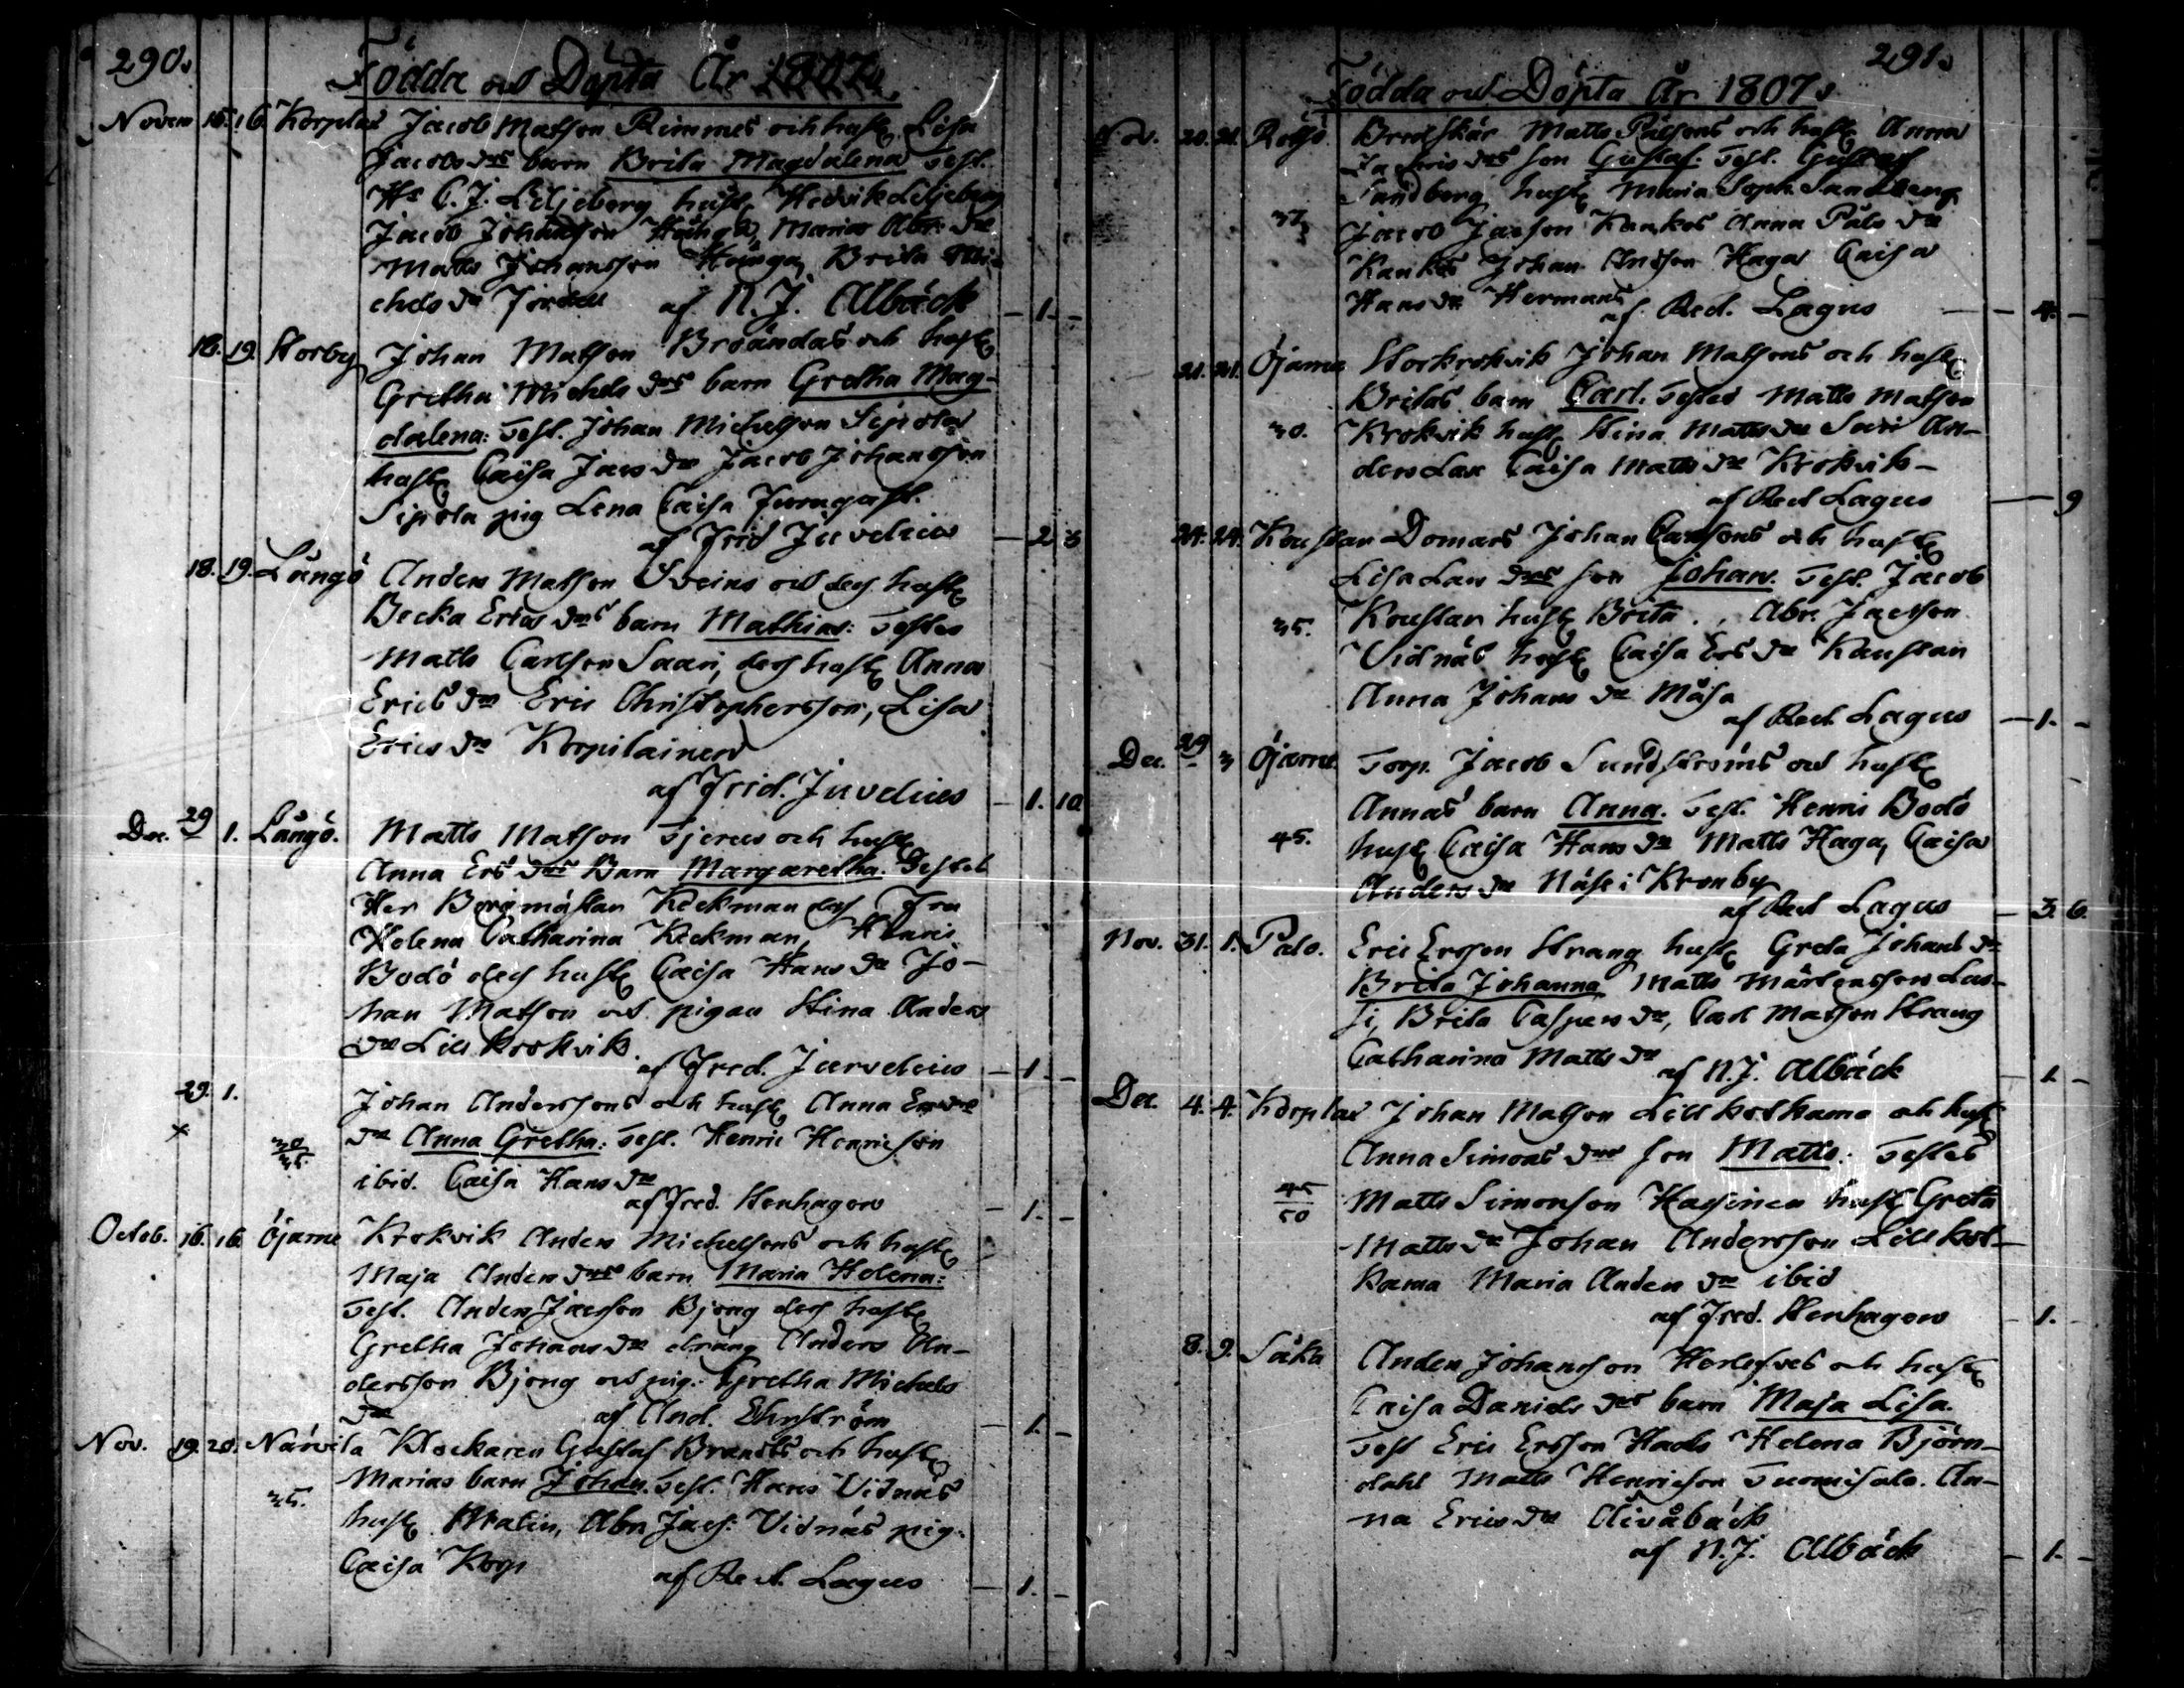 290.
Födda och Döpta År 1807.
Novem 15. 16. Korplax Jacob Matsson Rimmes och hust. Lisa
Jacobs drs barn Brita Magdalena Test.
Hr C. J. Liljeberg hust. Hedvik Liljeberg
Jacob Johansson Hånga, Maria Abr. dr
Matts Johansson Hånga, Brita Mi-
chels dr af N. J. Albäck - 1. -
18. 19. Storby Johan Matsson Broändas och hust.
Gretha Michels drs barn Gretha Mag-
dalena: Test. Johan Michelsson Sipola
hust. Caisa Jacs dr Jacob Johansson
Sipola pig Lena Caisa
af Frid Juvelius - 2 3
18. 19. Långö Anders Matsson Sveins och des hust.
Becka Erics drs barn Mathias: Testes
Matts Carlsson Saari, des hust. Anna
Erics dr Eric Christophersson, Lisa
Erics dr Korpilainen
af Frid. Juvelius - 1. 10
Dec. 29 1. Långö. Matts Matsson Tjerus och hust.
Anna Ers drs Barn Margaretha. Testes
Her Borgmästar Keckman des Fru
Helena Catharina Keckman, Henric
Bodö des hust. Caisa Hans dr Jo-
han Matsson och pigan Stina Anders
dr Lill Krokvik.
af Fred. Juvelius - 1. -
29. 1. Johan Anderssons och hust. Anna
x dr Anna Gretha: Test. Henric Henricsson
30/35. ibid. Caisa Hans dr
af Fred. Stenhagen - 1. -
Octob. 16. 16. Öjarne Krokvik Anders Michelssons och hust.
Maja Anders drs barn Maria Helena:
Test. Anders Jacsson Bjong des hust.
Gretha Johans dr dräng Anders An-
dersson Bjong och pig. Gretha Michels
dr af And. Ehrström - 1. -
Nov. 19. 20. Närvila Klockaren Gustaf Brandts och hust.
Marias barn Johan. Test. Hans Vidnäs
35. hust. Malin, Abr. Jacs. Vidnäs pig.
Caisa Korp af Red. Lagus - 1. -
291.
Födda och Döpta År 1807.
Nov. 20. 21. Rögö Bredskär Matts Pålsons och hust. Anna
drs son Gustaf: Test. Gustaf
Sandberg hust. Maria Soph. Sandberg
37. Jacob Jacsson Kankos Anna Påls dr
Kankos Johan Andsson Haga Caisa
Hans dr Hermans
af Red. Lagus - 4. -
21. 21. Öjarne Storkrokvik Johan Matsons och hust.
Britas barn Carl. Testes Matts Matsson
30. Krokvik hust. Stina Matts dr Savi An-
ders Lax Caisa Matts dr Krokvik -
af Red Lagus - 9
24. 24. Koustar Domars Johan Carlsons och hust.
Lisa Lars drs son Johan. Test. Jacob
35. Koustar hust. Brita., Abr. Jacsson
Vidnäs hust. Caisa Ers dr Kaustar
Anna Johans dr Måsa
af Red Lagus - 1. -
Dec. 29 3 Öjarne Torp. Jacob Sundströms och hust.
Annas barn Anna. Test. Henric Bodö
45. hust. Caisa Hans dr Matts Haga, Caisa
Anders dr Näse i Kronby
af Red Lagus - 3. 6.
Nov. 31. 1. Palo. Eric Ersson Strang hust. Greta Johans dr
Brita Johanna Matts Mårtensson Las-
si, Brita Caspers dr, Carl Matsson Strang
Catharina Matts dr
af N. J. Albäck - 1 -
Dec. 4. 4. Korplax Johan Matsson Lill kolkama och hust
Anna Simons drs son Matts: Testes
45/50 Matts Simonsson Hassinen hust. Greta
Matts dr Johan Andersson Lill kol-
kama Maria Anders dr ibid
af Fred. Stenhagen - 1. -
8. 9. Såka Anders Johansson Herlefves och hust.
Caisa Daniels drs barn Maja Lisa.
Test Eric Ersson Hads Helena Björn-
dahl Matts Henricsson Tuomisalo. An-
na Erics dr Åivåbäck
af N. J. Albäck - 1. -